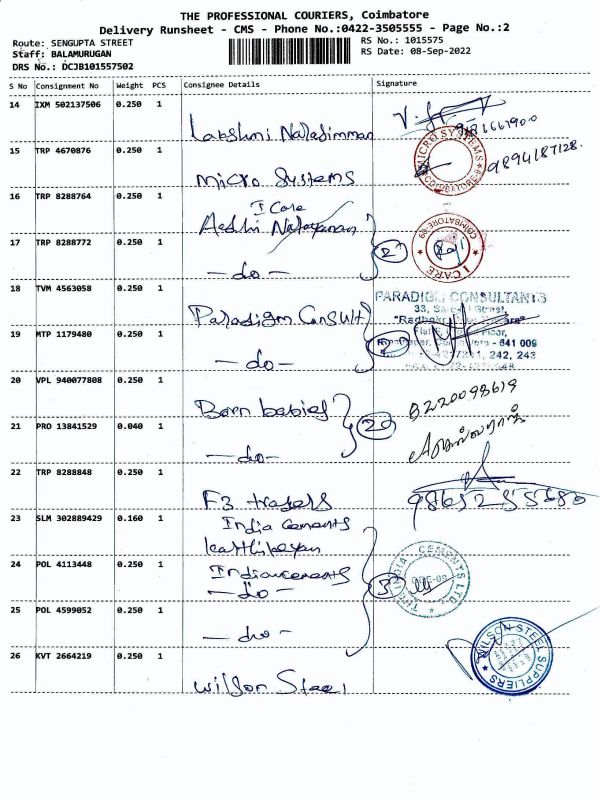 THE PROFESSIONAL COURIERS, Coimbatore
Delivery Runsheet - CMS - Phone No.:0422-3505555 - Page No.:2
Route: SENGUPTA STREET
Staff: BALAMURUGAN
DRS No.: DCJB101557502
RS No.: 1015575
RS Date: 08-Sep-2022
S No Consignment No Weight PCS Consignee Details Signature
14 IXM 502137506 0.250 1
Lakshmi Narasimman
15 TRP 4670876 0.250 1
MICRO SYSTEMS
COIMBATORE
9894187128.
Micro Systems
16 TRP 8288764 0.250 1
I Care
17 TRP 8288772 0.250 1
COIMBATORE-09
I CARE
2
- do -
18 TVM 4563058 0.250 1
Paradigm Consult
PARADIGM CONSULTANTS
19 MTP 1179480 0.250 1
- 641 009
242, 243
- do -
20 VPL 940077808 0.250 1
Born babies
8220098619
21 PRO 13841529 0.040 1
- do -
22 TRP 8288848 0.250 1
F3 traders
9865255680
23 SLM 302889429 0.160 1
India cements
Karthikeyan
24 POL 4113448 0.250 1
Indiacements
- do -
3
THE INDIA CEMENTS LTD.
25 POL 4599052 0.250 1
- do -
26 KVT 2664219 0.250 1
Wilson Steel
WILSON STEEL SUPPLIERS